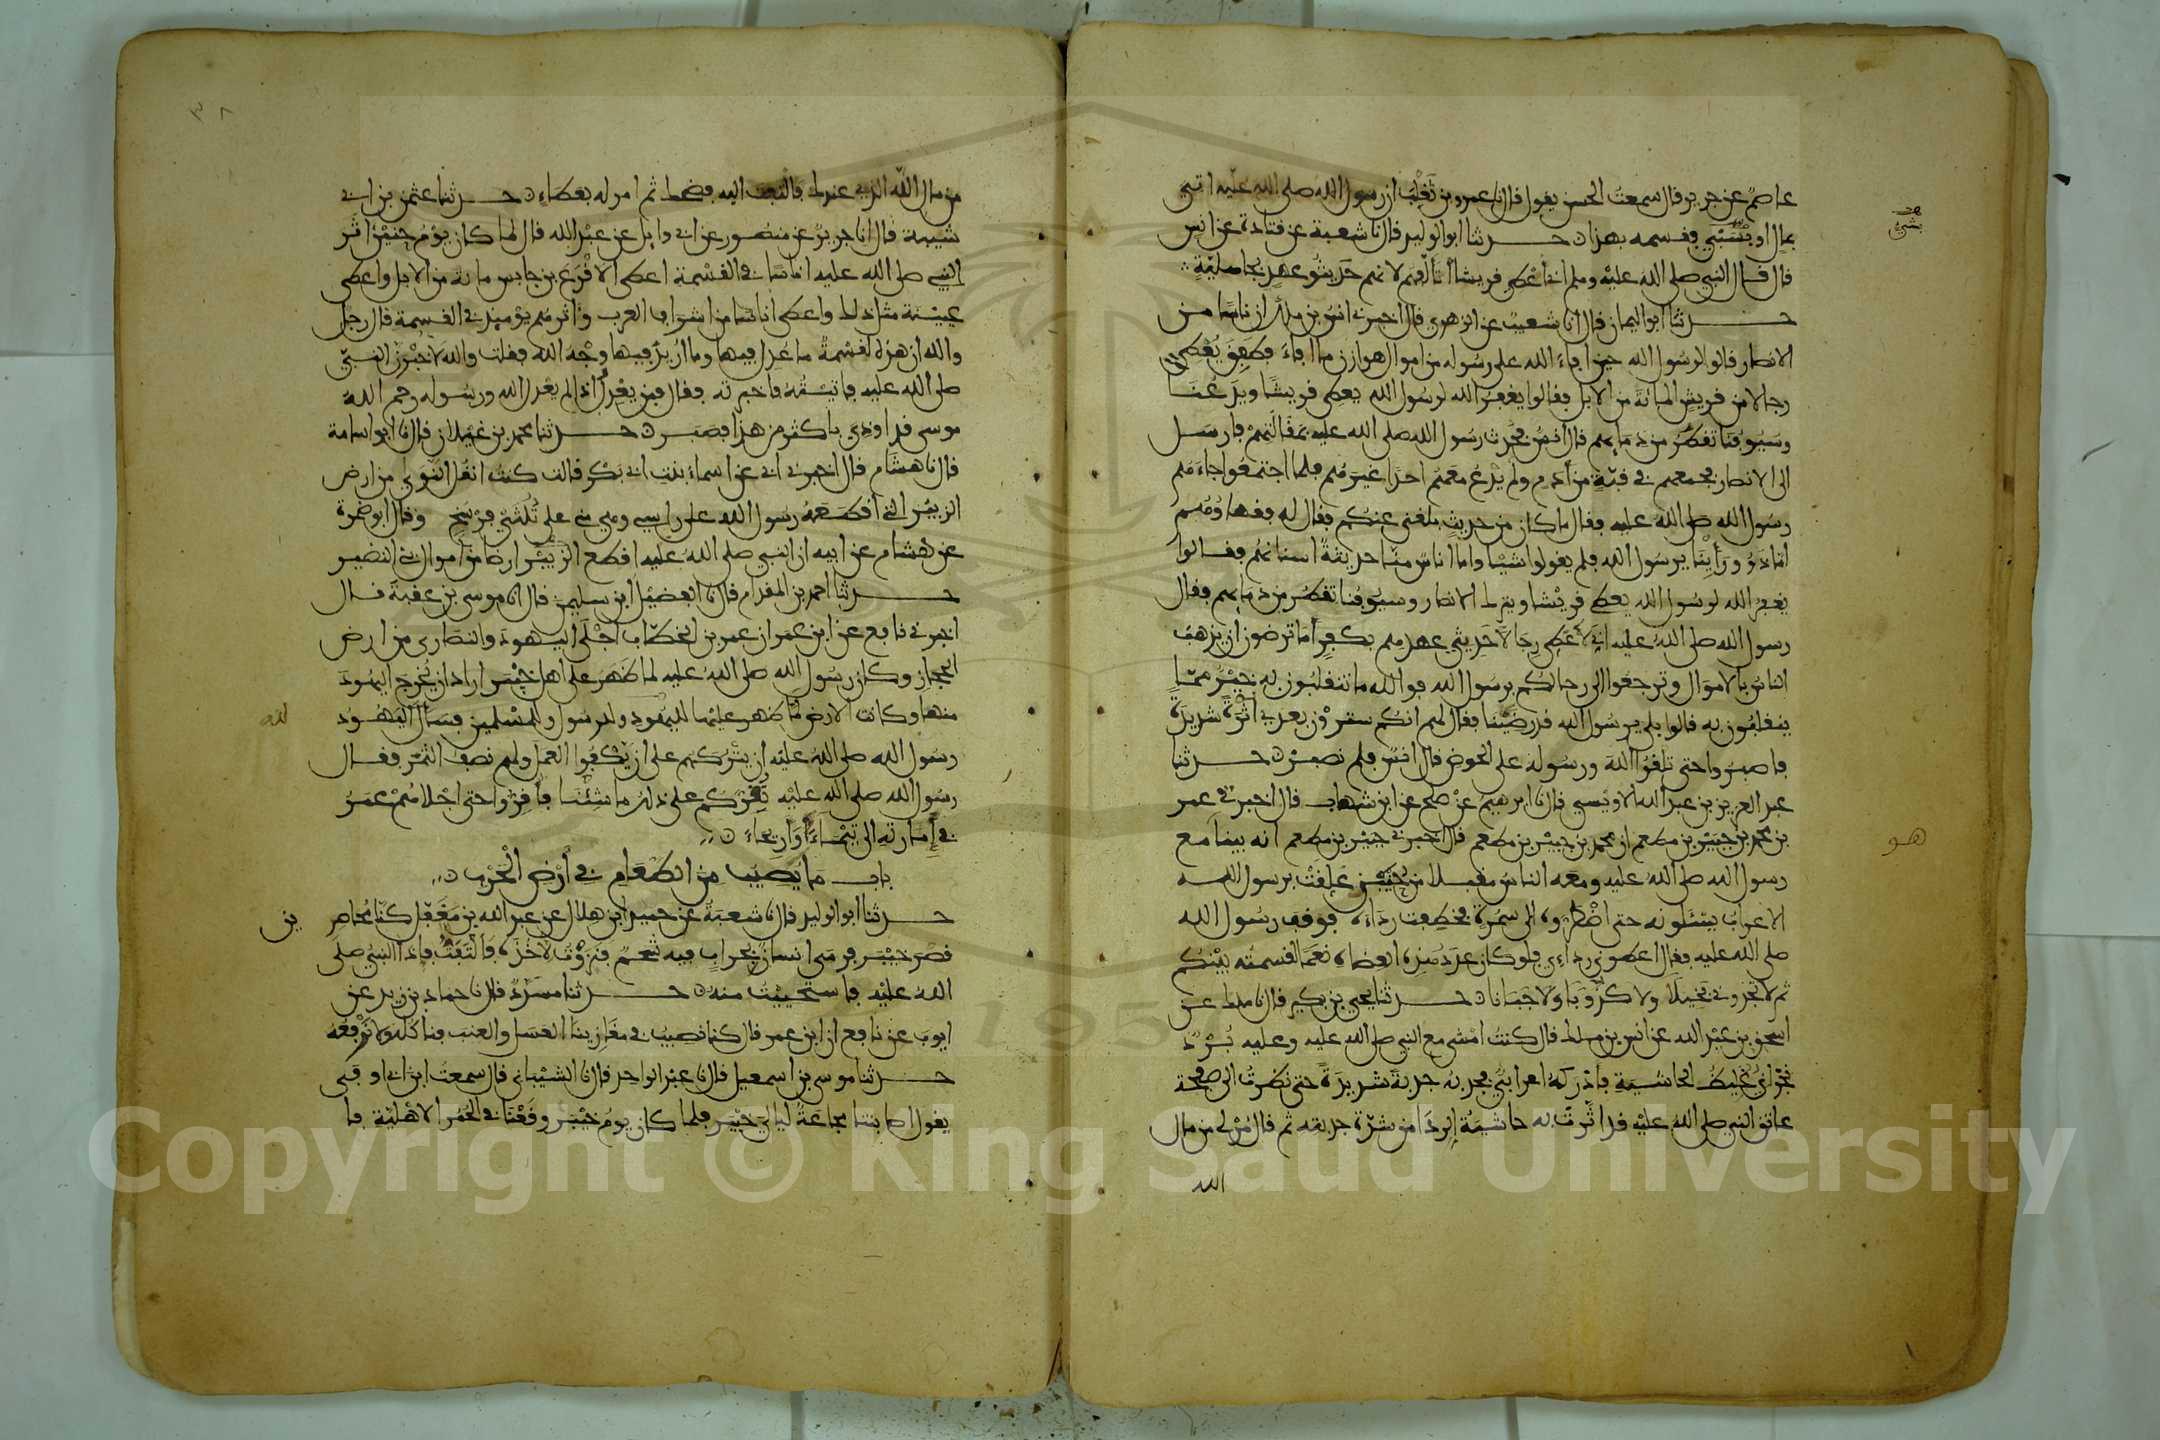 عاصم عن جرير قال سمعت الحسن يقول قال نا عمرو بن تغلب ان رسول الله صلى الله عليه اتي
بمال او بشيء فقسمه بهذا حدثنا ابو الوليد قال نا شعبة عن قتادة عن انس
قال قال النبي صلى الله عليه وسلم اني اعطي قريشا اتالفهم لانهم حديثو عهد بجاهلية
حدثنا ابو اليمان قال انا شعيب عن الزهري قال اخبرني انس بن ملك ان ناسا من
الانصار قالوا لرسول الله حين افاء الله على رسوله من اموال هوازن ما افاء فطفق يعطي
رجالا من قريش المائة من الابل فقالوا يغفر الله لرسول الله يعطي قريشا ويدعنا
وسيوفنا تقطر من دمايهم قال انس فحدث رسول الله صلى الله عليه بمقالتهم فارسل
الى الانصار فجمعهم في قبة من ادم ولم يدع معهم احدا غيرهم فلما اجتمعوا جاءهم
رسول الله صلى الله عليه فقال ما كان من حديث بلغني عنكم فقال له فقهاؤهم
اما ذوو رأينا يرسول الله فلم يقولوا شيئا واما اناس منا حديثة اسنانهم فقالوا
يغفر الله لرسول الله يعطي قريشا ويترك الانصار وسيوفنا تقطر من دمايهم فقال
رسول الله صلى الله عليه اني لاعطي رجالا حديثي عهدهم بكفر أما ترضون ان يذهب
الناس بالاموال وترجعوا الى رحالكم برسول الله فوالله ما تنقلبون به خير مما
ينقلبون به قالوا بلى يرسول الله قد رضينا فقال لهم انكم سترون بعدي أثرة شديدة
فاصبروا حتى تلقوا الله ورسوله على الحوض قال انس فلم نصبر حدثنا
عبد العزيز بن عبد الله الاويسي قال نا ابرهيم عن صلح عن ابن شهاب قال اخبرني عمر
بن محمد بن جبير بن مطعم ان محمد بن جبير بن مطعم قال اخبرني جبير بن مطعم انه بينا مع
رسول الله صلى الله عليه ومعه الناس مقبلا من حنين علقت برسول الله
الاعراب يسئلونه حتى اضطروه الى سمرة فخطفت رداءه فوقف رسول الله
صلى الله عليه فقال اعطوني رداءي فلو كان عدد هذه العضاه نعما لقسمته بينكم
ثم لا تجدوني بخيلا ولا كذوبا ولا جبانا حدثنا يحيى بن بكير قال نا ملك عن
اسحق بن عبد الله عن انس بن ملك قال كنت امشي مع النبي صلى الله عليه وعليه برد
نجراني غليظ الحاشية فادركه اعرابي فجذبه جذبة شديدة حتى نظرت الى صفحة
عاتق النبي صلى الله عليه قد اثرت به حاشية الرداء من شدة جذبته ثم قال مر لي من مال
الله
بشيء
هو
من مال الله الذي عندك فالتفت اليه فضحك ثم امر له بعطاء حدثنا عثمن بن ابي
شيبة قال انا جرير عن منصور عن ابي وايل عن عبد الله قال لما كان يوم حنين اثر
النبي صلى الله عليه اناسا في القسمة اعطى الاقرع بن حابس مائة من الابل واعطى
عيينة مثل ذلك واعطى اناسا من اشراف العرب واثرهم يومئذ في القسمة قال رجل
والله ان هذه لقسمة ما عدل فيها وما اريد فيها وجه الله فقلت والله لاخبرن النبي
صلى الله عليه فاتيته فاخبرته فقال فمن يعدل اذا لم يعدل الله ورسوله رحم الله
موسى قد اوذي باكثر من هذا فصبر حدثنا محمود بن غيلان قال نا ابو اسامة
قال نا هشام قال اخبرني ابي عن اسماء بنت ابي بكر قالت كنت انقل النوى من ارض
الزبير التي اقطعه رسول الله على راسي وهي مني على ثلثي فرسخ وقال ابو ضمرة
عن هشام عن ابيه ان النبي صلى الله عليه اقطع الزبير ارضا من اموال بني النضير
حدثنا احمد بن المقدام قال نا الفضيل ابن سليمن قال نا موسى بن عقبة قال
اخبرني نافع عن ابن عمر ان عمر بن الخطاب اجلى اليهود والنصارى من ارض
الحجاز وكان رسول الله صلى الله عليه لما ظهر على اهل خيبر اراد ان يخرج اليهود
منها وكانت الارض لما ظهر عليها لليهود ولرسول وللمسلمين فسأل اليهود
رسول الله صلى الله عليه ان يتركهم على ان يكفوا العمل ولهم نصف الثمر فقال
رسول الله صلى الله عليه نقركم على ذلك ما شئنا فأقروا حتى اجلاهم عمر
في إمارته الى تيماء أو أريحاء
باب ما يصيب من الطعام في أرض الحرب
حدثنا ابو الوليد قال نا شعبة عن حميد ابن هلال عن عبد الله بن مغفل كنا محاصر
قصر خيبر فرمى انسان بجراب فيه شحم فنزوت لاخذه فالتفت فاذا النبي صلى
الله عليه فاستحييت منه حدثنا مسدد قال نا حماد بن زيد عن
ايوب عن نافع ان ابن عمر قال كنا نصيب في مغازينا العسل والعنب فناكله ولا نرفعه
حدثنا موسى بن اسمعيل قال نا عبد الواحد قال نا الشيباني قال سمعت ابن ابي اوفى
يقول اصابتنا مجاعة ليالي خيبر فلما كان يوم خيبر وقعنا في الحمر الاهلية فا
لله
ين
Copyright © King Saud University